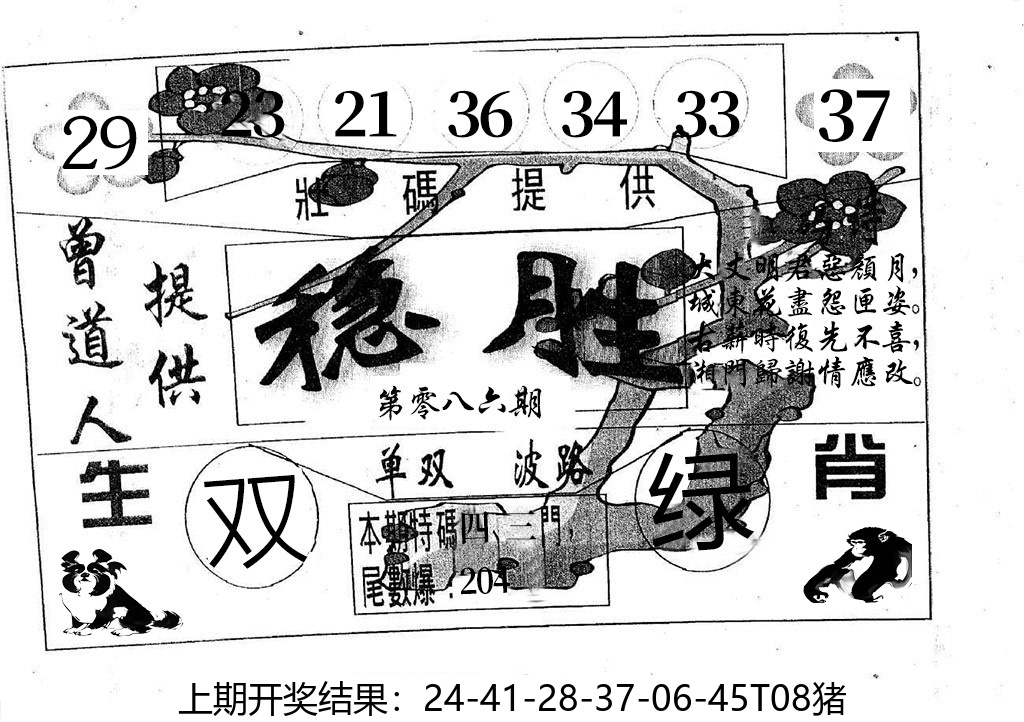 29 23 21 36 34 33 37
壯碼提供
曾道人
提供
稳胜
第零八六期
大丈明君惡顏月，
城東花盡怨匣姿。
古薪時復先不喜，
湘門歸謝情應改。
单双 波路
生肖
双
绿
本期特碼四、三門，
尾數爆：204
上期开奖结果：24-41-28-37-06-45T08猪